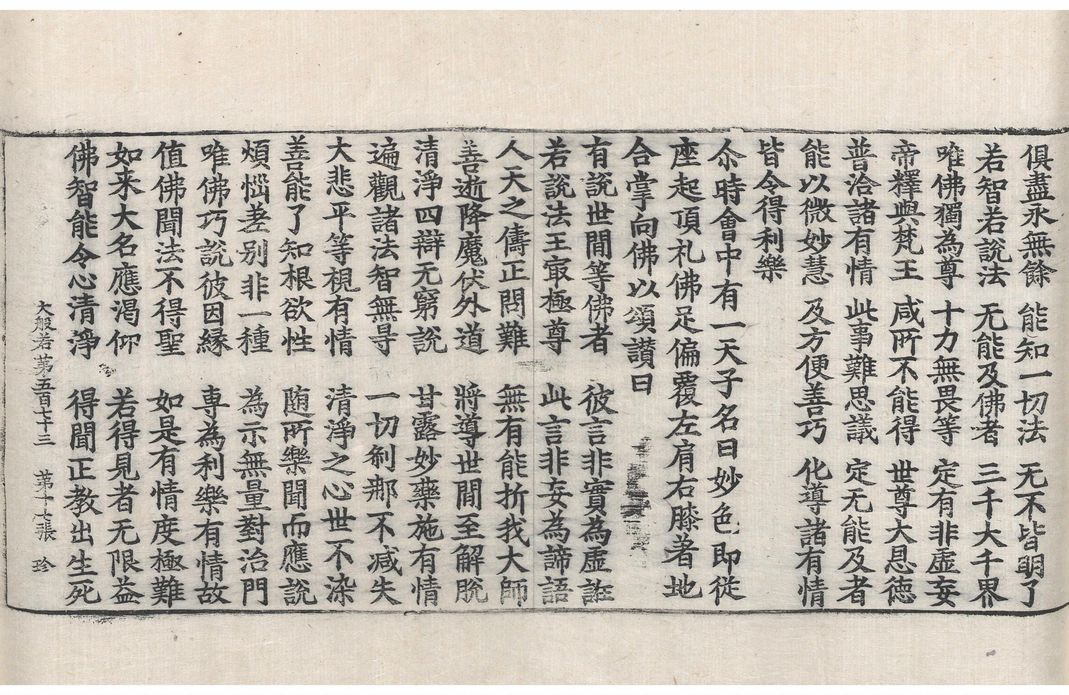 俱盡永無餘 能知一切法 无不皆明了
若智若說法 无能及佛者 三千大千界
唯佛獨為尊 十力無畏等 定有非虛妄
帝釋與梵王 咸所不能得 世尊大恩德
普洽諸有情 此事難思議 定无能及者
能以微妙慧 及方便善巧 化導諸有情
皆令得利樂
尒時會中有一天子名曰妙色即從
座起頂礼佛足偏覆左肩右膝著地
合掌向佛以頌讚曰
有說世間等佛者 彼言非實為虛誑
若說法王㝡極尊 此言非妄為諦語
人天之儔正問難 無有能折我大師
善逝降魔伏外道 將導世間至解脫
清淨四辯无窮說 甘露妙藥施有情
遍觀諸法智無㝵 一切剎那不減失
大悲平等視有情 清淨之心世不染
善能了知根欲性 随所樂聞而應說
煩惱差別非一種 為示無量對治門
唯佛巧說彼因緣 專為利樂有情故
值佛聞法不得聖 如是有情度極難
如来大名應渴仰 若得見者无限益
佛智能令心清淨 得聞正教出生死
大般若第五百七十三 第十七張 珍